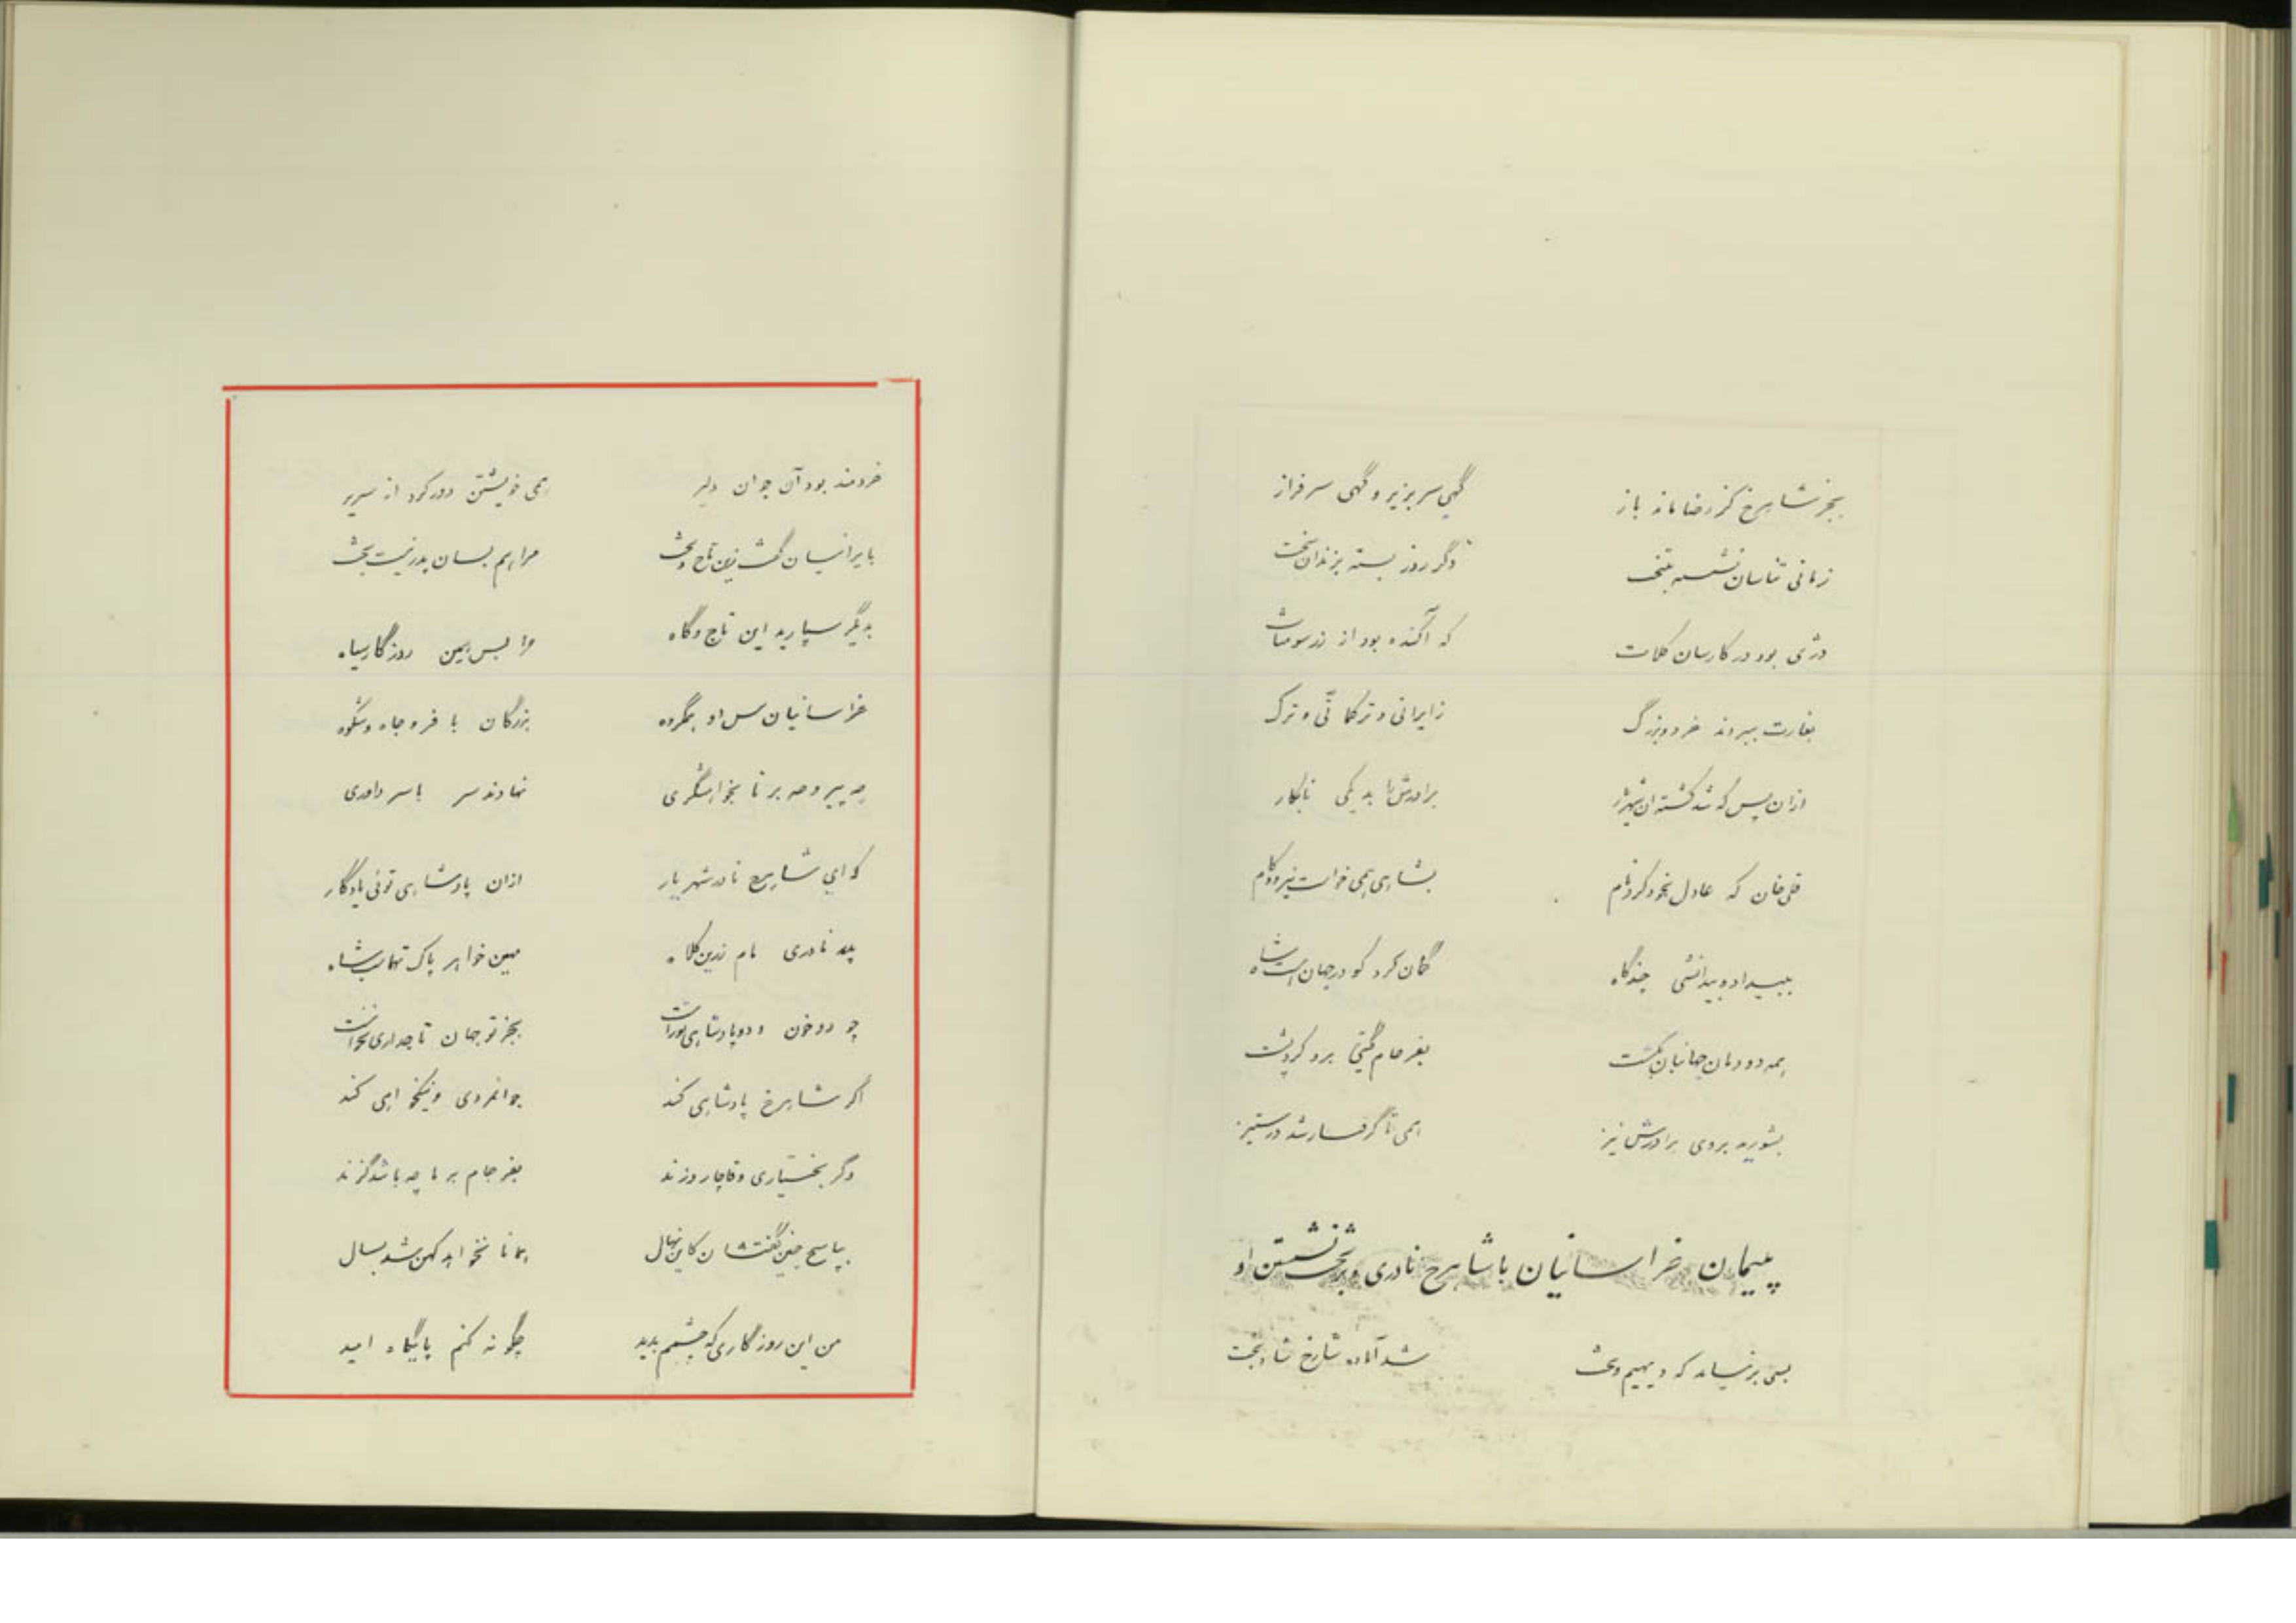 بجز شاهرخ کز رضا ماند باز گهی سر بزیر و گهی سرفراز
زمانی تناسان نشسته بتخت دگر روز بسته بزندان سخت
دژی بود در کارسان کلات که آکنده بود از زر سومنات
بغارت ببردند خرد و بزرگ ز ایرانی و ترکمانی و ترک
ازان پس که شد کشته آن شهریار برادرش با بدیکی نابکار
قلی خان که عادل بخود کرد نام بشاهی همی خواست نیرو و کام
ببیداد و بیدانشی چندگاه گمان کرد کو در جهان است شاه
همه دودمان جهانبان بکشت بفرجام گیتی برو کرد پشت
بشورید بروی برادرش نیز همی تا گرفتار شد در ستیز
پیمان خراسانیان با شاهرخ نادری و بر تخت نشستن او
بسی برنیامد که دیهیم و تخت شد آماده شاهرخ شاد بخت
خردمند بود آن جوان دلیر همی خویشتن دور کرد از سریر
بایرانیان گفت زین تاج و تخت مرا هم بسان پدر نیست بخت
بدیگر سپارید این تاج و گاه مرا بس همین روزگار سیاه
خراسانیان پس او همگروه بزرگان با فر و جاه و شکوه
چه پیر و چه برنا بخواهشگری نهادند سر با سر داوری
که ای شاهرخ نادر شهریار ازان پادشاهی توئی یادگار
پدر نادری مام زرین کلاه مهین خواهر پاک تهماسب شاه
چو دو خون و دو پادشاهی تو راست بجز تو جهان تاجداری نخواست
اگر شاهرخ پادشاهی کند جوانمردی و نیکخواهی کند
وگر بختیاری و قاجار و زند بفرجام بر ما چه باشد گزند
بپاسخ چنین گفتشان کاین نهال همانا نخواهد کهن شد بسال
من این روزگاری که چشمم بدید چگونه کنم پایگاه امید